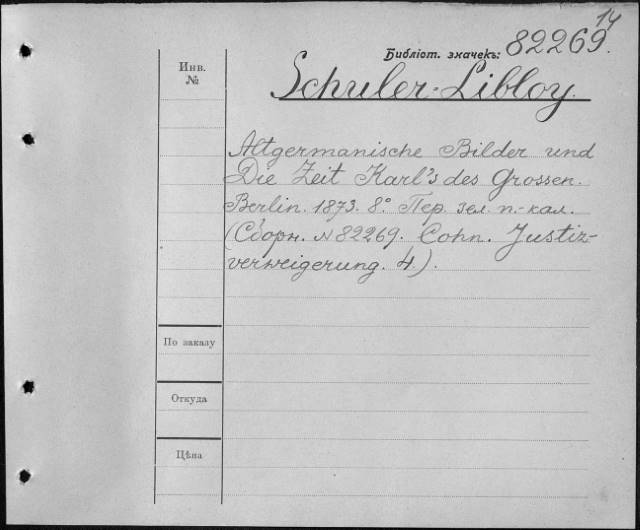 14
Библіот. значекъ: 82269.
Инв.
№
Schuler-Libloy.
Altgermanische Bilder und
Die Zeit Karl's des Grossen.
Berlin. 1873. 8° Пер. зел. п.-кал.
(Сборн. № 82269. Cohn. Justiz-
verweigerung. 4.).
По заказу
Откуда
Цѣна